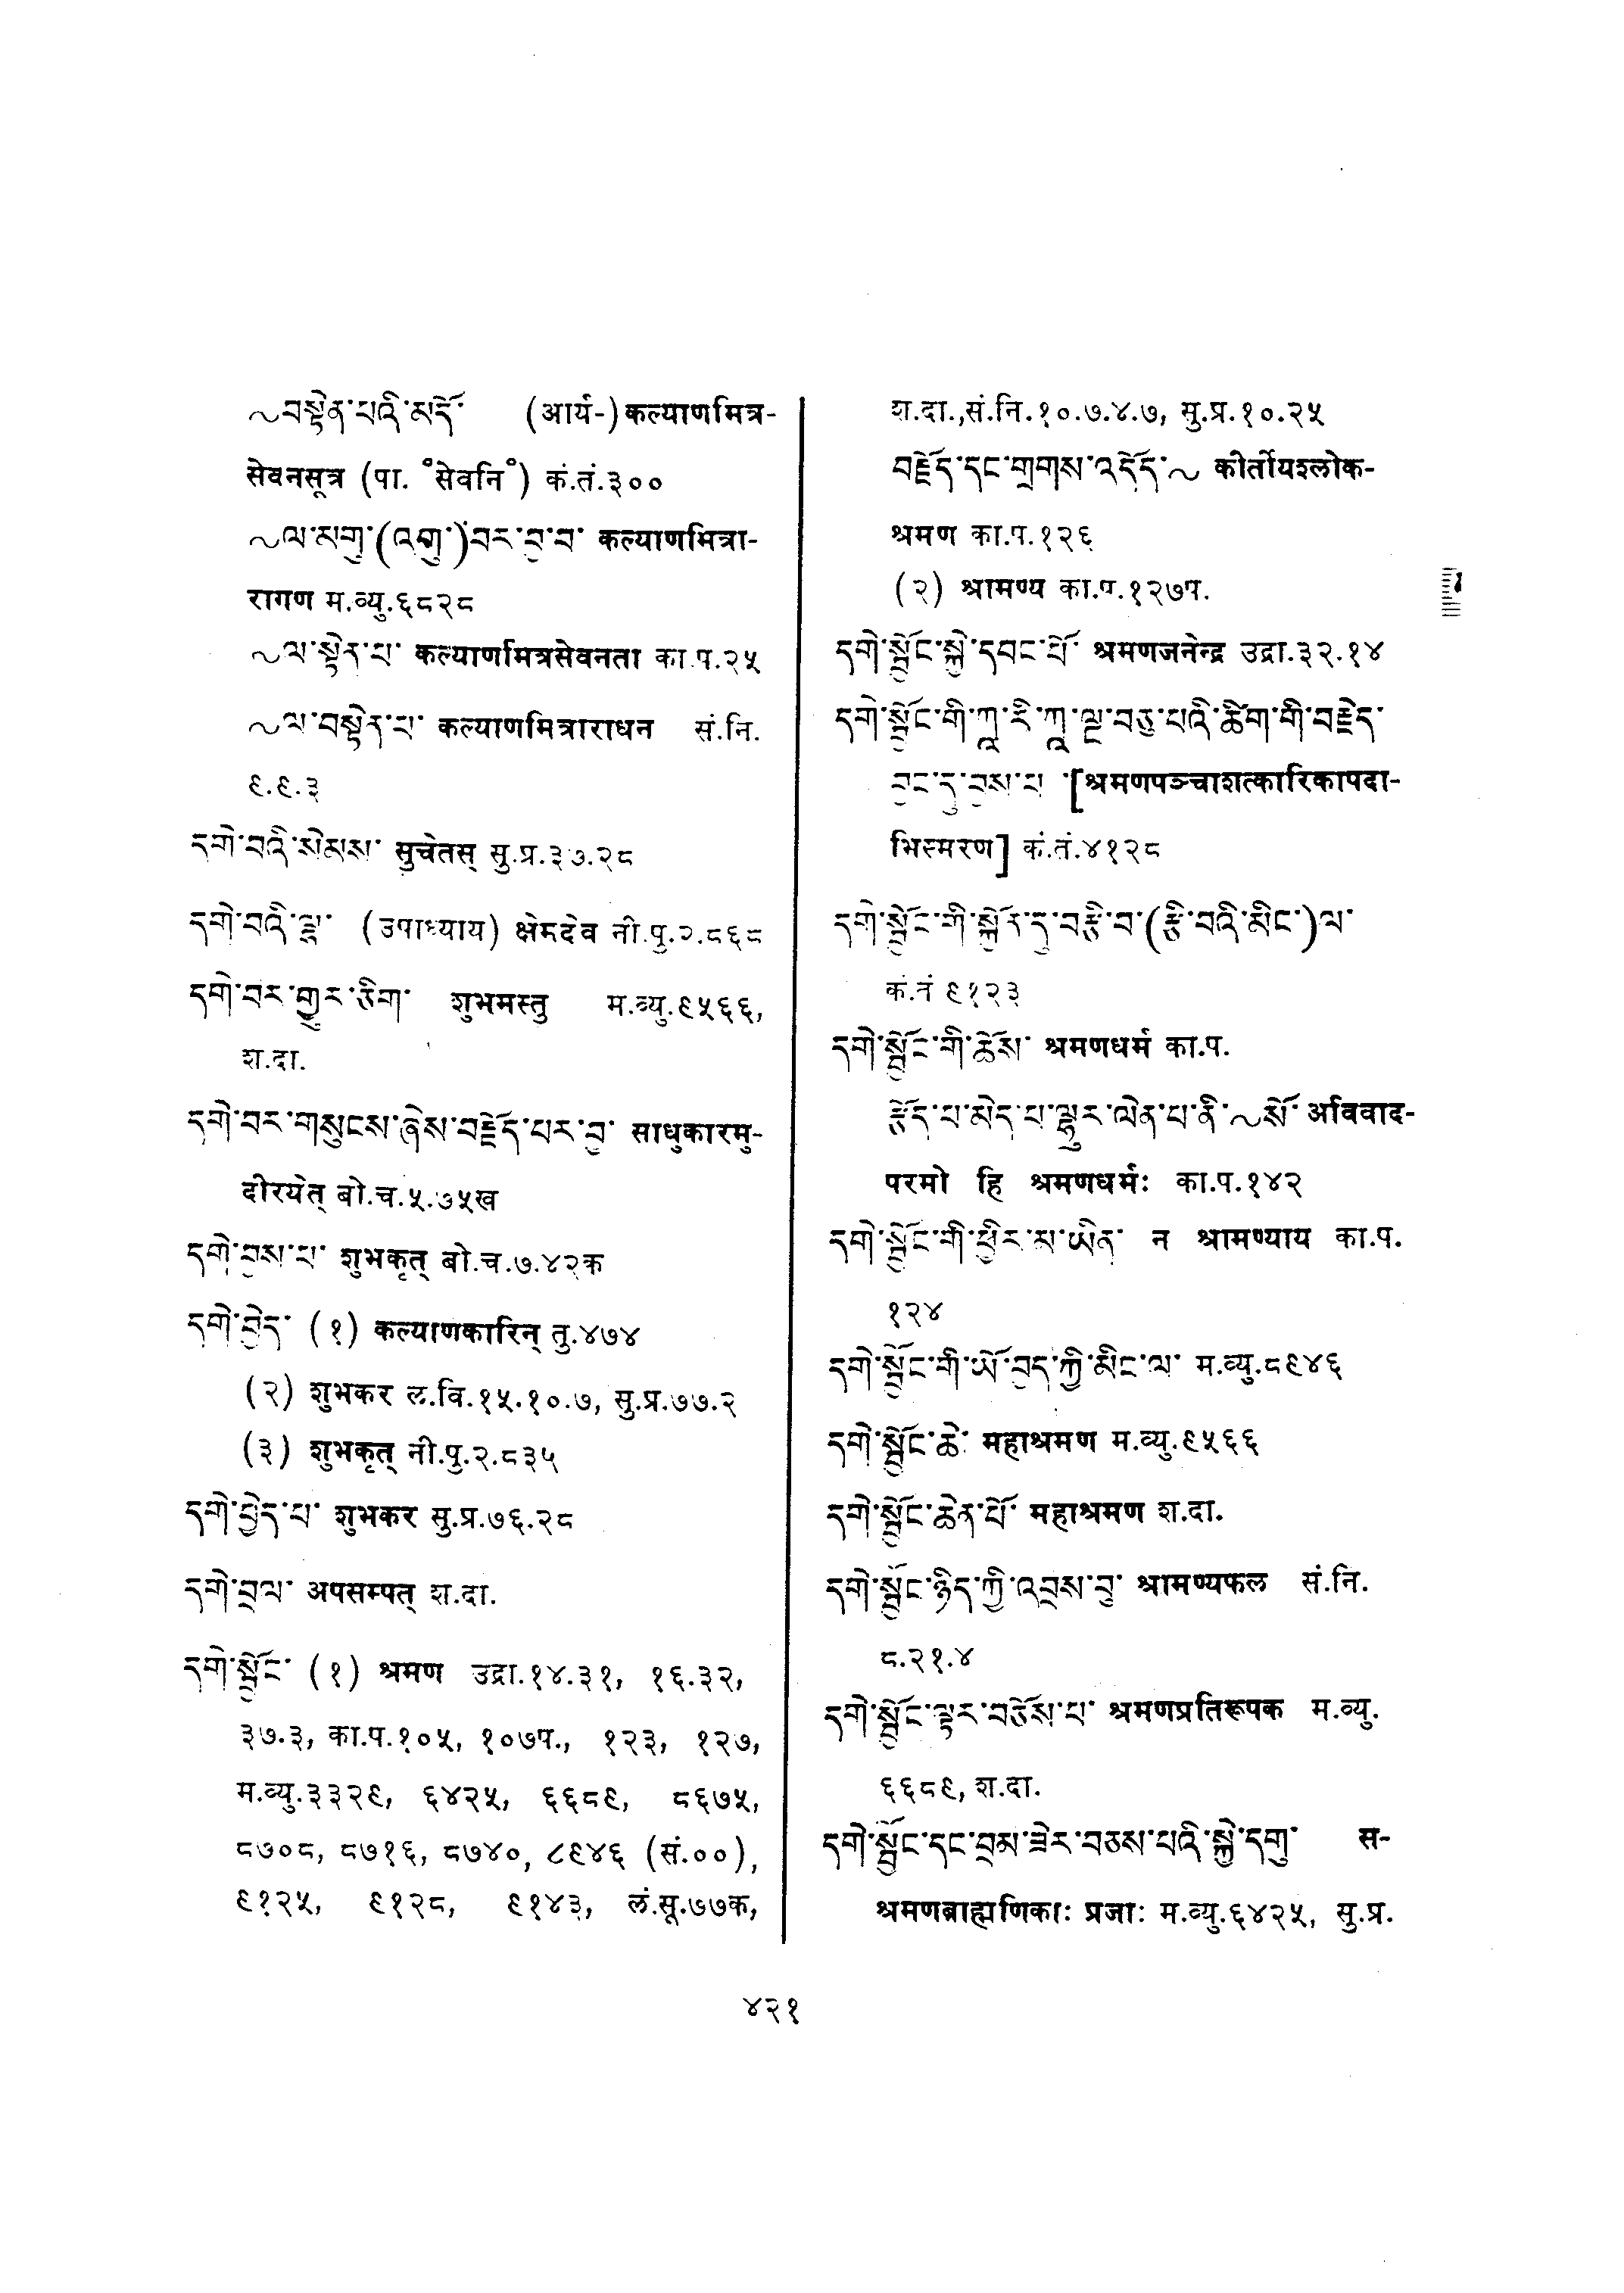 ~བསྟེན་པའི་མདོ་ (आर्य-)कल्याणमित्र-
सेवनसूत्र (पा. °सेवनि°) कं.तं.३००
~ལ་མགུ་(འགུ་)བར་བྱ་བ་ कल्याणमित्रा-
रागण म.व्यु.६८२८
~ལ་སྟེན་པ་ कल्याणमित्रसेवनता का.प.२५
~ལ་བསྟེན་པ་ कल्याणमित्राराधन सं.नि.
९.९.३
དགེ་བའི་སེམས་ सुचेतस् सु.प्र.३७.२८
དགེ་བའི་ལྷ་ (उपाध्याय) क्षेमदेव नी.पु.२.८६८
དགེ་བར་གྱུར་ཅིག་ शुभमस्तु म.व्यु.९५६६,
श.दा.
དགེ་བར་གསུངས་ཞེས་བརྗོད་པར་བྱ་ साधुकारमु-
दीरयेत् बो.च.५.७५ख
དགེ་བྱས་པ་ शुभकृत् बो.च.७.४२क
དགེ་བྱེད་ (१) कल्याणकारिन् तु.४७४
(२) शुभकर ल.वि.१५.१०.७, सु.प्र.७७.२
(३) शुभकृत् नी.पु.२.८३५
དགེ་བྱེད་པ་ शुभकर सु.प्र.७६.२८
དགེ་བྲལ་ अपसम्पत् श.दा.
དགེ་སྦྱོང་ (१) श्रमण उद्रा.१४.३१, १६.३२,
३७.३, का.प.१०५, १०७प., १२३, १२७,
म.व्यु.३३२९, ६४२५, ६६८९, ८६७५,
८७०८, ८७१६, ८७४०, ८९४६ (सं.००),
९१२५, ९१२८, ९१४३, लं.सू.७७क,
श.दा.,सं.नि.१०.७.४.७, सु.प्र.१०.२५
བརྗོད་དང་གྲགས་འདོད་~ कीर्तीयश्लोक-
श्रमण का.प.१२६
(२) श्रामण्य का.प.१२७प.
དགེ་སྦྱོང་སྐྱེ་དབང་པོ་ श्रमणजनेन्द्र उद्रा.३२.१४
དགེ་སྦྱོང་གི་ཀཱ་རི་ཀཱ་ལྔ་བཅུ་པའི་ཚིག་གི་བརྗེད་
བྱང་དུ་བྱས་པ་ [श्रमणपञ्चाशत्कारिकापदा-
भिस्मरण] कं.तं.४१२८
དགེ་སྦྱོང་གི་སྐོར་དུ་བརྩི་བ་(རྩི་བའི་མིང་)ལ་
कं.तं ९१२३
དགེ་སྦྱོང་གི་ཆོས་ श्रमणधर्म का.प.
རྩོད་པ་མེད་པ་ལྷུར་ལེན་པ་ནི་~སོ་ अविवाद-
परमो हि श्रमणधर्मः का.प.१४२
དགེ་སྦྱོང་གི་ཕྱིར་མ་ཡིན་ न श्रामण्याय का.प.
१२४
དགེ་སྦྱོང་གི་ཡོ་བྱད་ཀྱི་མིང་ལ་ म.व्यु.८९४६
དགེ་སྦྱོང་ཆེ་ महाश्रमण म.व्यु.९५६६
དགེ་སྦྱོང་ཆེན་པོ་ महाश्रमण श.दा.
དགེ་སྦྱོང་ཉིད་ཀྱི་འབྲས་བུ་ श्रामण्यफल सं.नि.
८.२१.४
དགེ་སྦྱོང་ལྟར་བཅོས་པ་ श्रमणप्रतिरूपक म.व्यु.
६६८९, श.दा.
དགེ་སྦྱོང་དང་བྲམ་ཟེར་བཅས་པའི་སྐྱེ་དགུ་ स-
श्रमणब्राह्मणिकाः प्रजाः म.व्यु.६४२५, सु.प्र.
४२१